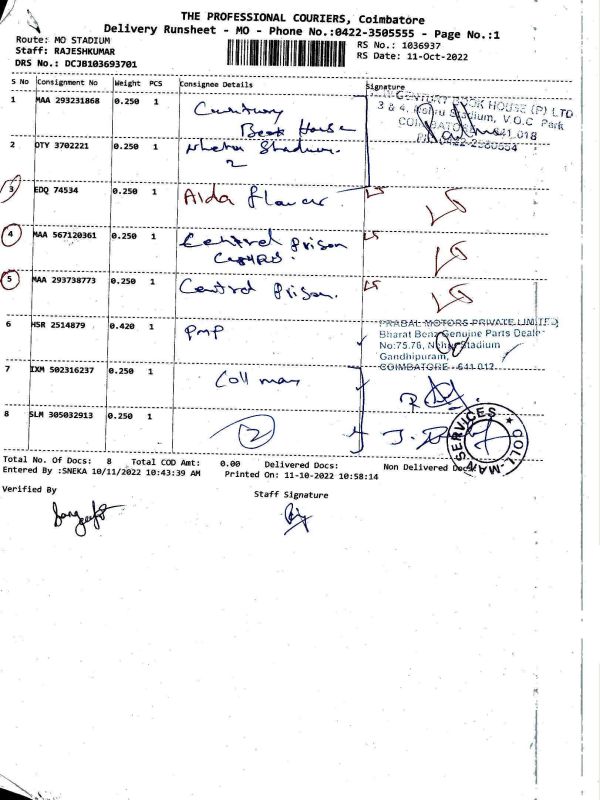 THE PROFESSIONAL COURIERS, Coimbatore
Delivery Runsheet - MO - Phone No.:0422-3505555 - Page No.:1
Route: MO STADIUM
RS No.: 1036937
Staff: RAJESHKUMAR
RS Date: 11-Oct-2022
DRS No.: DCJB103693701
S No Consignment No Weight PCS Consignee Details Signature
1 MAA 293231868 0.250 1 Century Book House
CENTURY BOOK HOUSE (P) LTD
3 & 4, Nehru Stadium, V.O.C Park
COIMBATORE - 641 018
PH: 0422-2380554
2 DTY 3702221 0.250 1 Nehru Stadium
2
3 EDQ 74534 0.250 1 Alda
4 MAA 567120361 0.250 1 Central prison
5 MAA 293738773 0.250 1 Central prison.
6 HSR 2514879 0.420 1 PMP
PRABAL MOTORS PRIVATE LIMITED
Bharat Benz Genuine Parts Dealer
No:75,76, Nehru Stadium
Gandhipuram,
COIMBATORE - 641 012
7 IXM 502316237 0.250 1 Coll man
8 SLM 305032913 0.250 1 2
COLL-MAN SERVICES
Total No. Of Docs: 8 Total COD Amt: 0.00 Delivered Docs: Non Delivered Docs:
Entered By :SNEKA 10/11/2022 10:43:39 AM Printed On: 11-10-2022 10:58:14
Verified By
Staff Signature